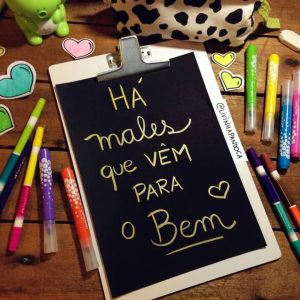 HÁ
males
que VÊM
PARA
O Bem
@LIVINHAPANTOJA